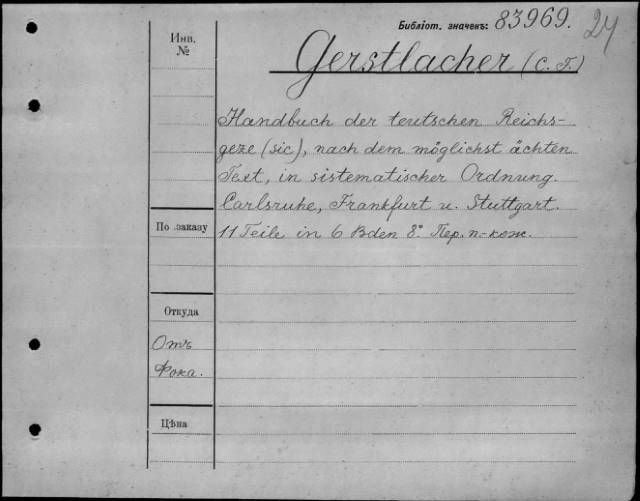 Библіот. значекъ: 83969. 24
Инв.
№
Gerstlacher (C. F.)
Handbuch der teutschen Reichs-
geze (sic), nach dem möglichst ächten
Text, in sistematischer Ordnung.
Carlsruhe, Frankfurt u. Stuttgart.
По заказу
11 Teile in 6 Bden 8° Пер. п-кож.
Откуда
Отъ
Фока.
Цѣна